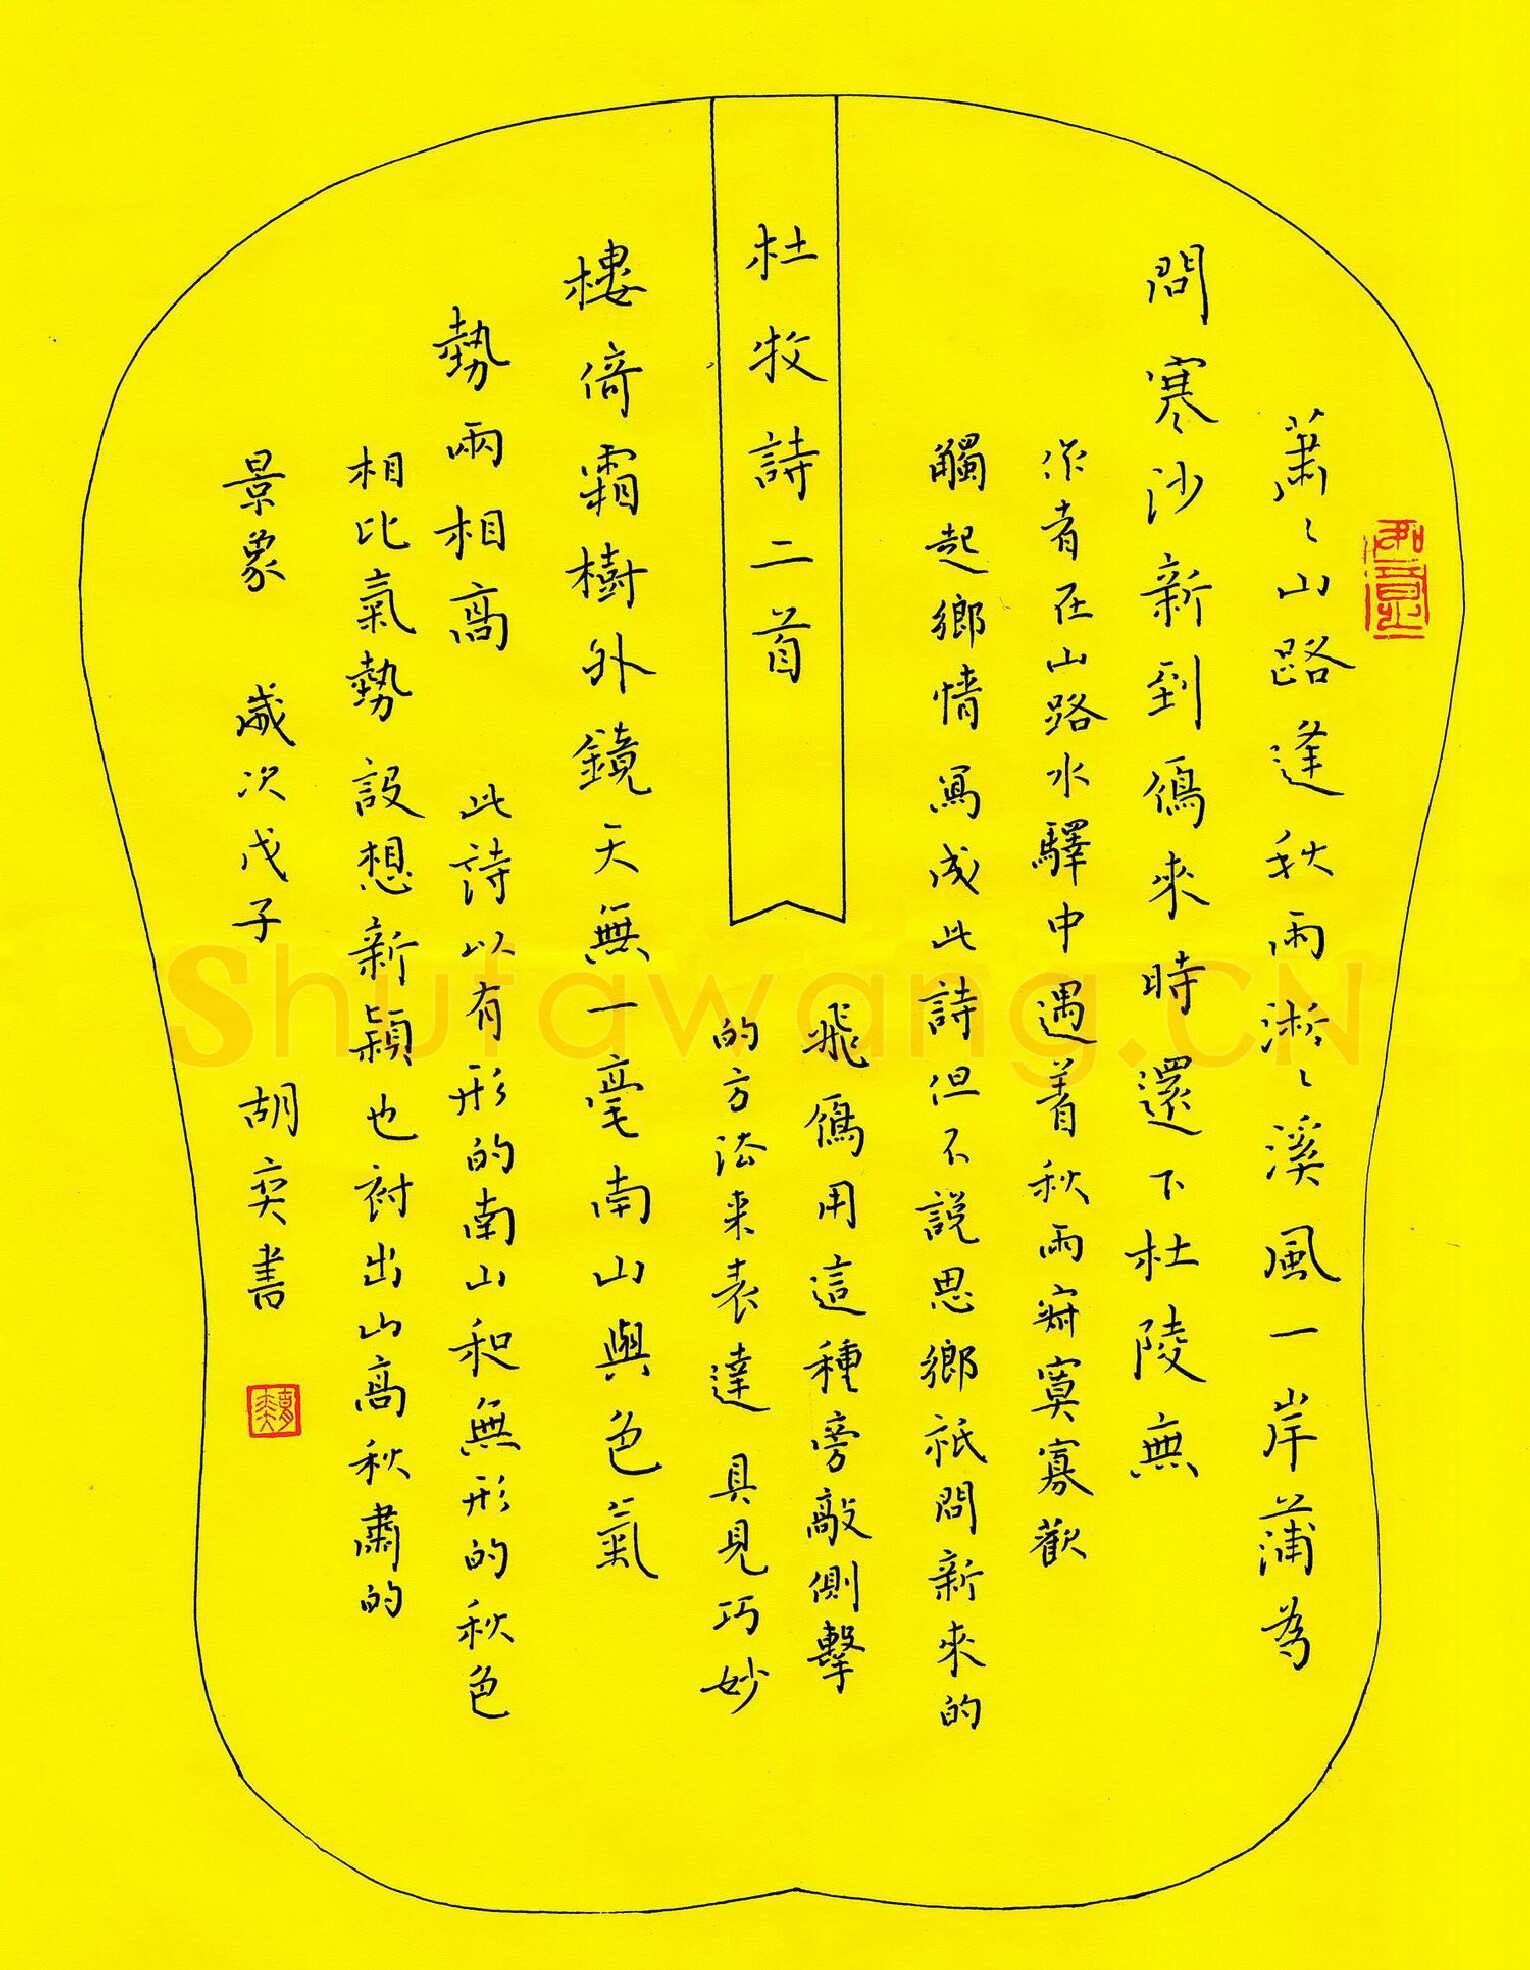 蕭〻山路逢秋雨淅〻溪風一岸蒲為
問寒沙新到鴈來時還下杜陵無
作者在山路水驛中遇着秋雨寂寞寡歡
觸起鄉情寫成此詩但不説思鄉祇問新來的
飛鴈用這種旁敲側擊
的方法来表達 具見巧妙
杜牧詩二首
樓倚霜樹外鏡天無一毫南山與色氣
勢兩相高 此詩以有形的南山和無形的秋色
相比氣勢設想新穎也襯出山高秋肅的
景象 歲次戊子 胡奕書
如意
Shufawang.CN